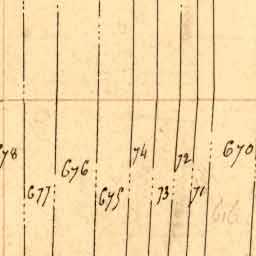 678 676 74 72 670
677 675 73 71
616